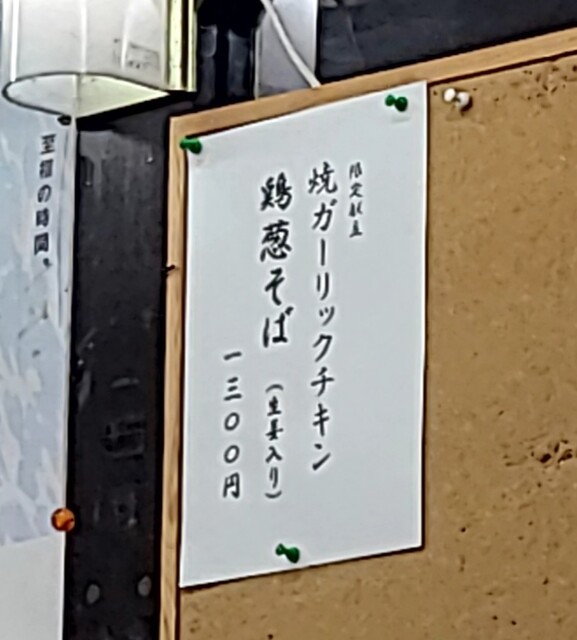 限定献立
焼ガーリックチキン
鶏葱そば（生姜入り）
一三〇〇円
至福の時間。